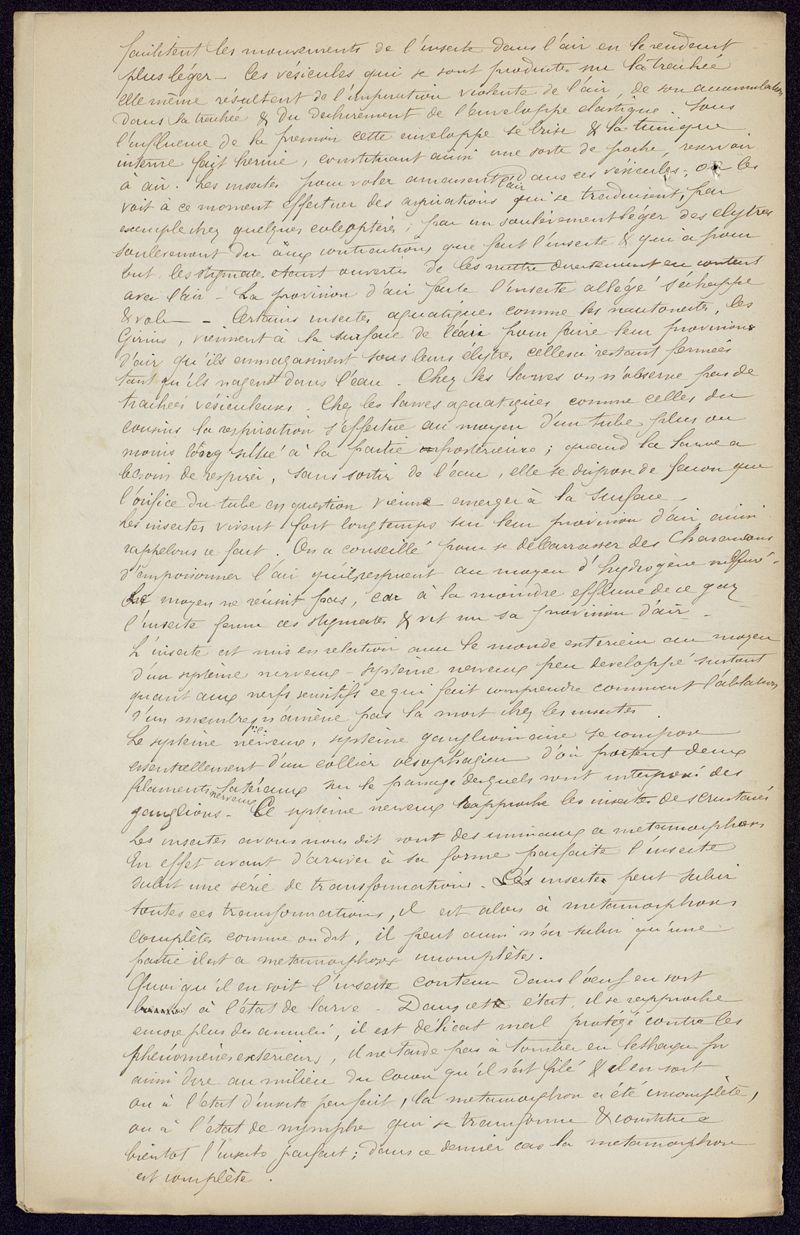 facilitent les mouvements de l'insecte dans l'air en le rendant
plus léger – Ces vésicules qui se sont produites sur la trachée
elle même résultent de l'inspiration violente de l'air, de son accumulation
dans la trachée & du déchirement de l'enveloppe élastique. Sous
l'influence de la pression cette enveloppe se brise & la tunique
interne fait hernie, constituant ainsi une sorte de poche, réservoir
à air. Les insectes pour voler amassent l'air dans ces vésicules, on les
voit à ce moment effectuer des aspirations qui se traduisent, par
exemple chez quelques coléoptères, par un soulèvement léger des élytres
soulèvement du aux contractions que fait l'insecte & qui a pour
but les stigmates étant ouvertes de les mettre directement en contact
avec l'air – La provision d'air faite l'insecte allégé s'échappe
& vole – Certains insectes aquatiques comme les nautonectes, les
Girins, viennent à la surface de l'eau pour faire leur provision
d'air qu'ils emmagasinent sous leurs élytres celles ci restant fermées
tant qu'ils nagent dans l'eau. Chez les larves on n'observe pas de
trachées vésiculeuses. Chez les larves aquatiques comme celles du
cousins la respiration s'effectue au moyen d'un tube plus ou
moins long situé à la partie postérieure; quand la larve a
besoin de respirer, sans sortir de l'eau, elle se dispose de façon que
l'orifice du tube en question vienne émerger à la surface –
Les insectes vivent fort longtemps sur leur provision d'air ainsi
rappelons ce fait. On a conseillé pour se débarrasser des Charançons
d'empoisonner l'air qu'ils respirent au moyen d'hydrogène sulfuré.
Ce moyen ne réussit pas, car à la moindre effluve de ce gaz
l'insecte ferme ces stigmates & vit sur sa provision d'air –
L'insecte est mis en relation avec le monde extérieur au moyen
d'un système nerveux – système nerveux peu développé surtout
quant aux nerfs sensitifs ce qui fait comprendre comment l'ablation
d'un membre n'amène pas la mort chez les insectes.
Le système nerveux, système ganglionnaire se compose
essentiellement d'un collier oesophagien d'où partent deux
filaments nerveux latéraux sur le passage desquels sont interposés des
ganglions – Ce système nerveux rapproche les insectes des crustacés
Les insectes avons nous dit sont des animaux a métamorphoses
En effet avant d'arriver à sa forme parfaite l'insecte
subit une série de transformations – L'insecte peut subir
toutes ces transformations, il est alors à métamorphoses
complètes comme on dit, il peut aussi n'en subir qu'une
partie il est a métamorphoses incomplètes.
Quoi qu'il en soit l'insecte contenu dans l'oeuf en sort
à l'état de larve – Dans cet état, il se rapproche
encore plus des annelés, il est délicat mal protégé contre les
phénomènes extérieurs, il ne tarde pas à tomber en léthargie pr
ainsi dire au milieu du cocon qu'il s'est filé & il en sort
ou à l'état d'insecte parfait, la métamorphose a été incomplète,
ou à l'état de nymphe qui se transforme & constitue
bientôt l'insecte parfait; dans ce dernier cas la métamorphose
est complète.